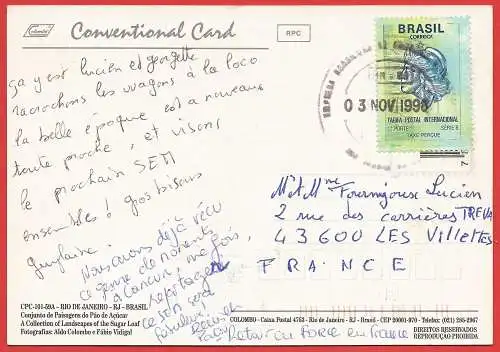 Colombo
Conventional Card
RPC
BRASIL
CORREIO
03 NOV 1998
TARIFA POSTAL INTERNACIONAL
1º PORTE SÉRIE B
TAXE PERÇUE
ça y est lucien et georgette
racrochons les wagons à la loco
la belle époque est a nouveau
toute proche, et visons
le prochain SEM
ensembles! gros bisous
guylaine.
Nous avons déjà vécu
ce genre de moments
a Cancun, une fois
ce soir sera
fabuleux.
Retour en Force en France
Mr et Mme Fournigoux Lucien
2 rue des carrières TREVA
43600 LES Villettes
FRANCE
CPC-101-59A - RIO DE JANEIRO - RJ - BRASIL
Conjunto de Paisagens do Pão de Açúcar
A Collection of Landscapes of the Sugar Loaf
Fotografias: Aldo Colombo e Fábio Vidigal
COLOMBO - Caixa Postal 4763 - Rio de Janeiro - RJ - CEP 20001-970 - Telefax: (021) 295-2967
DIREITOS RESERVADOS
REPRODUÇÃO PROIBIDA